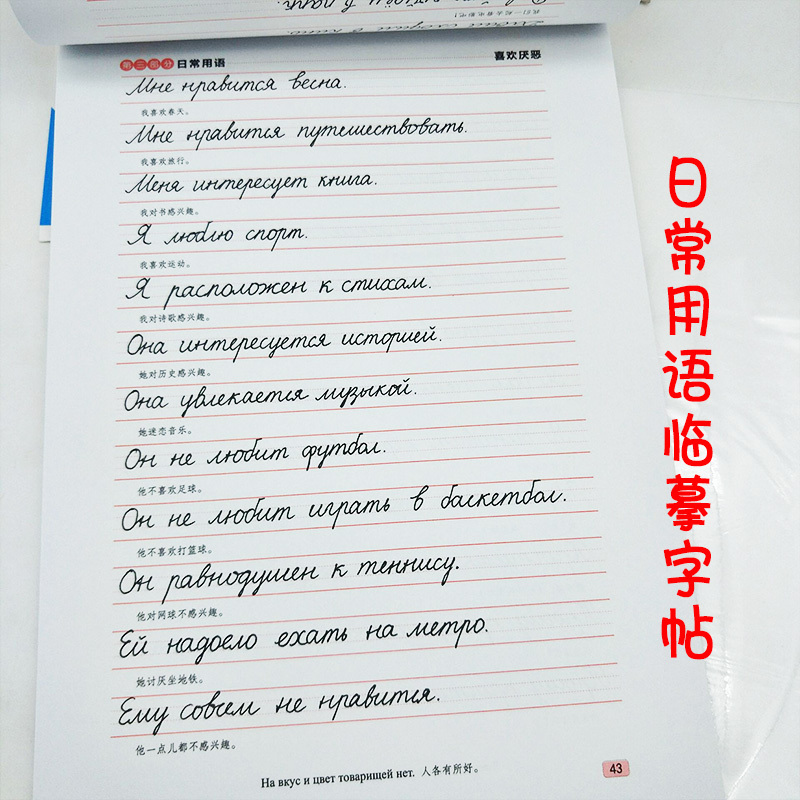 第三部分 日常用语 喜欢厌恶
Мне нравится весна.
我喜欢春天。
Мне нравится путешествовать.
我喜欢旅行。
Меня интересует книга.
我对书感兴趣。
Я люблю спорт.
我喜欢运动。
Я расположен к стихам.
我对诗歌感兴趣。
Она интересуется историей.
她对历史感兴趣。
Она увлекается музыкой.
她迷恋音乐。
Он не любит футбол.
他不喜欢足球。
Он не любит играть в баскетбол.
他不喜欢打篮球。
Он равнодушен к теннису.
他对网球不感兴趣。
Ей надоело ехать на метро.
她讨厌坐地铁。
Ему совсем не нравится.
他一点儿都不感兴趣。
На вкус и цвет товарищей нет. 人各有所好。
43
日常用语临摹字帖